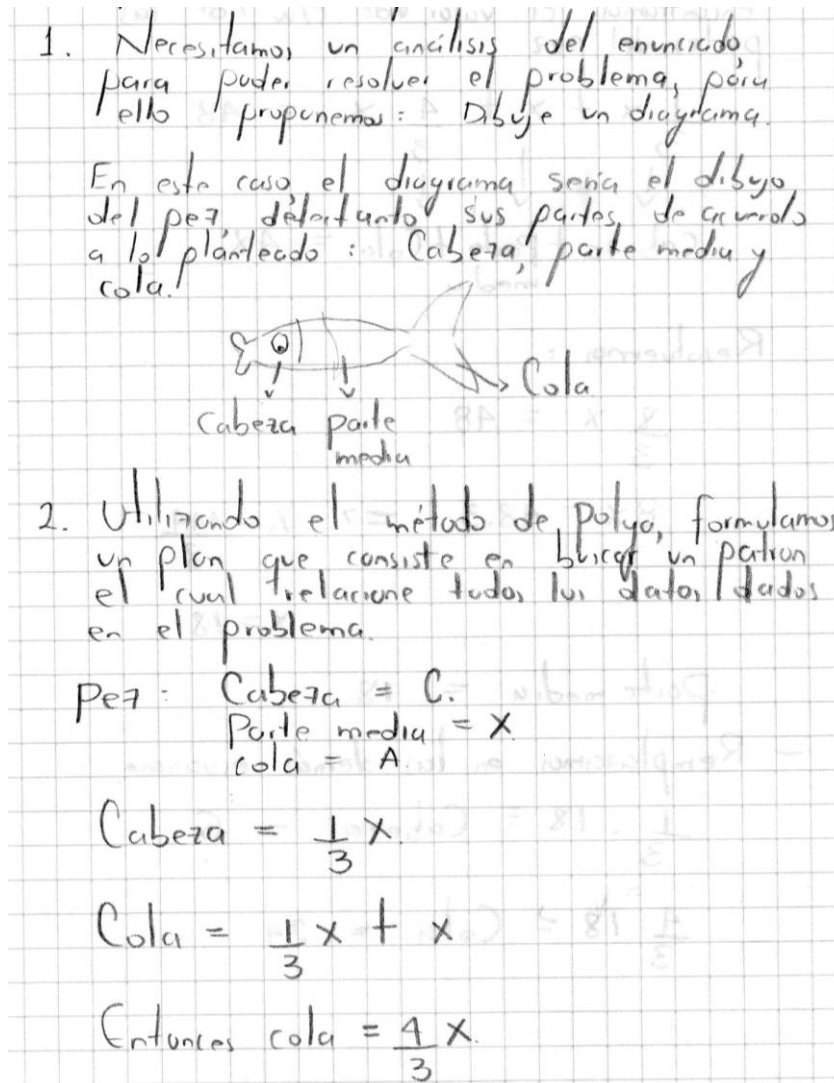 1. Necesitamos un análisis del enunciado
para poder resolver el problema, para
ello proponemos: Dibuje un diagrama.
En este caso el diagrama seria el dibujo
del pez detectando sus partes, de acuerdo
a lo planteado: Cabeza, parte media y
cola.
Cola
Cabeza parte
media
2. Utilizando el método de Polya, formulamos
un plan que consiste en buscar un patron
el cual relacione todos los datos dados
en el problema.
Pez: Cabeza = C.
Parte media = X
cola = A
Cabeza = 1/3 X.
Cola = 1/3 X + X
Entonces cola = 4/3 X.